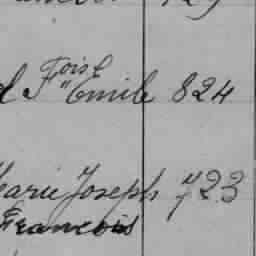 Fois E
Emile 824
Marie Joseph 723
Francois